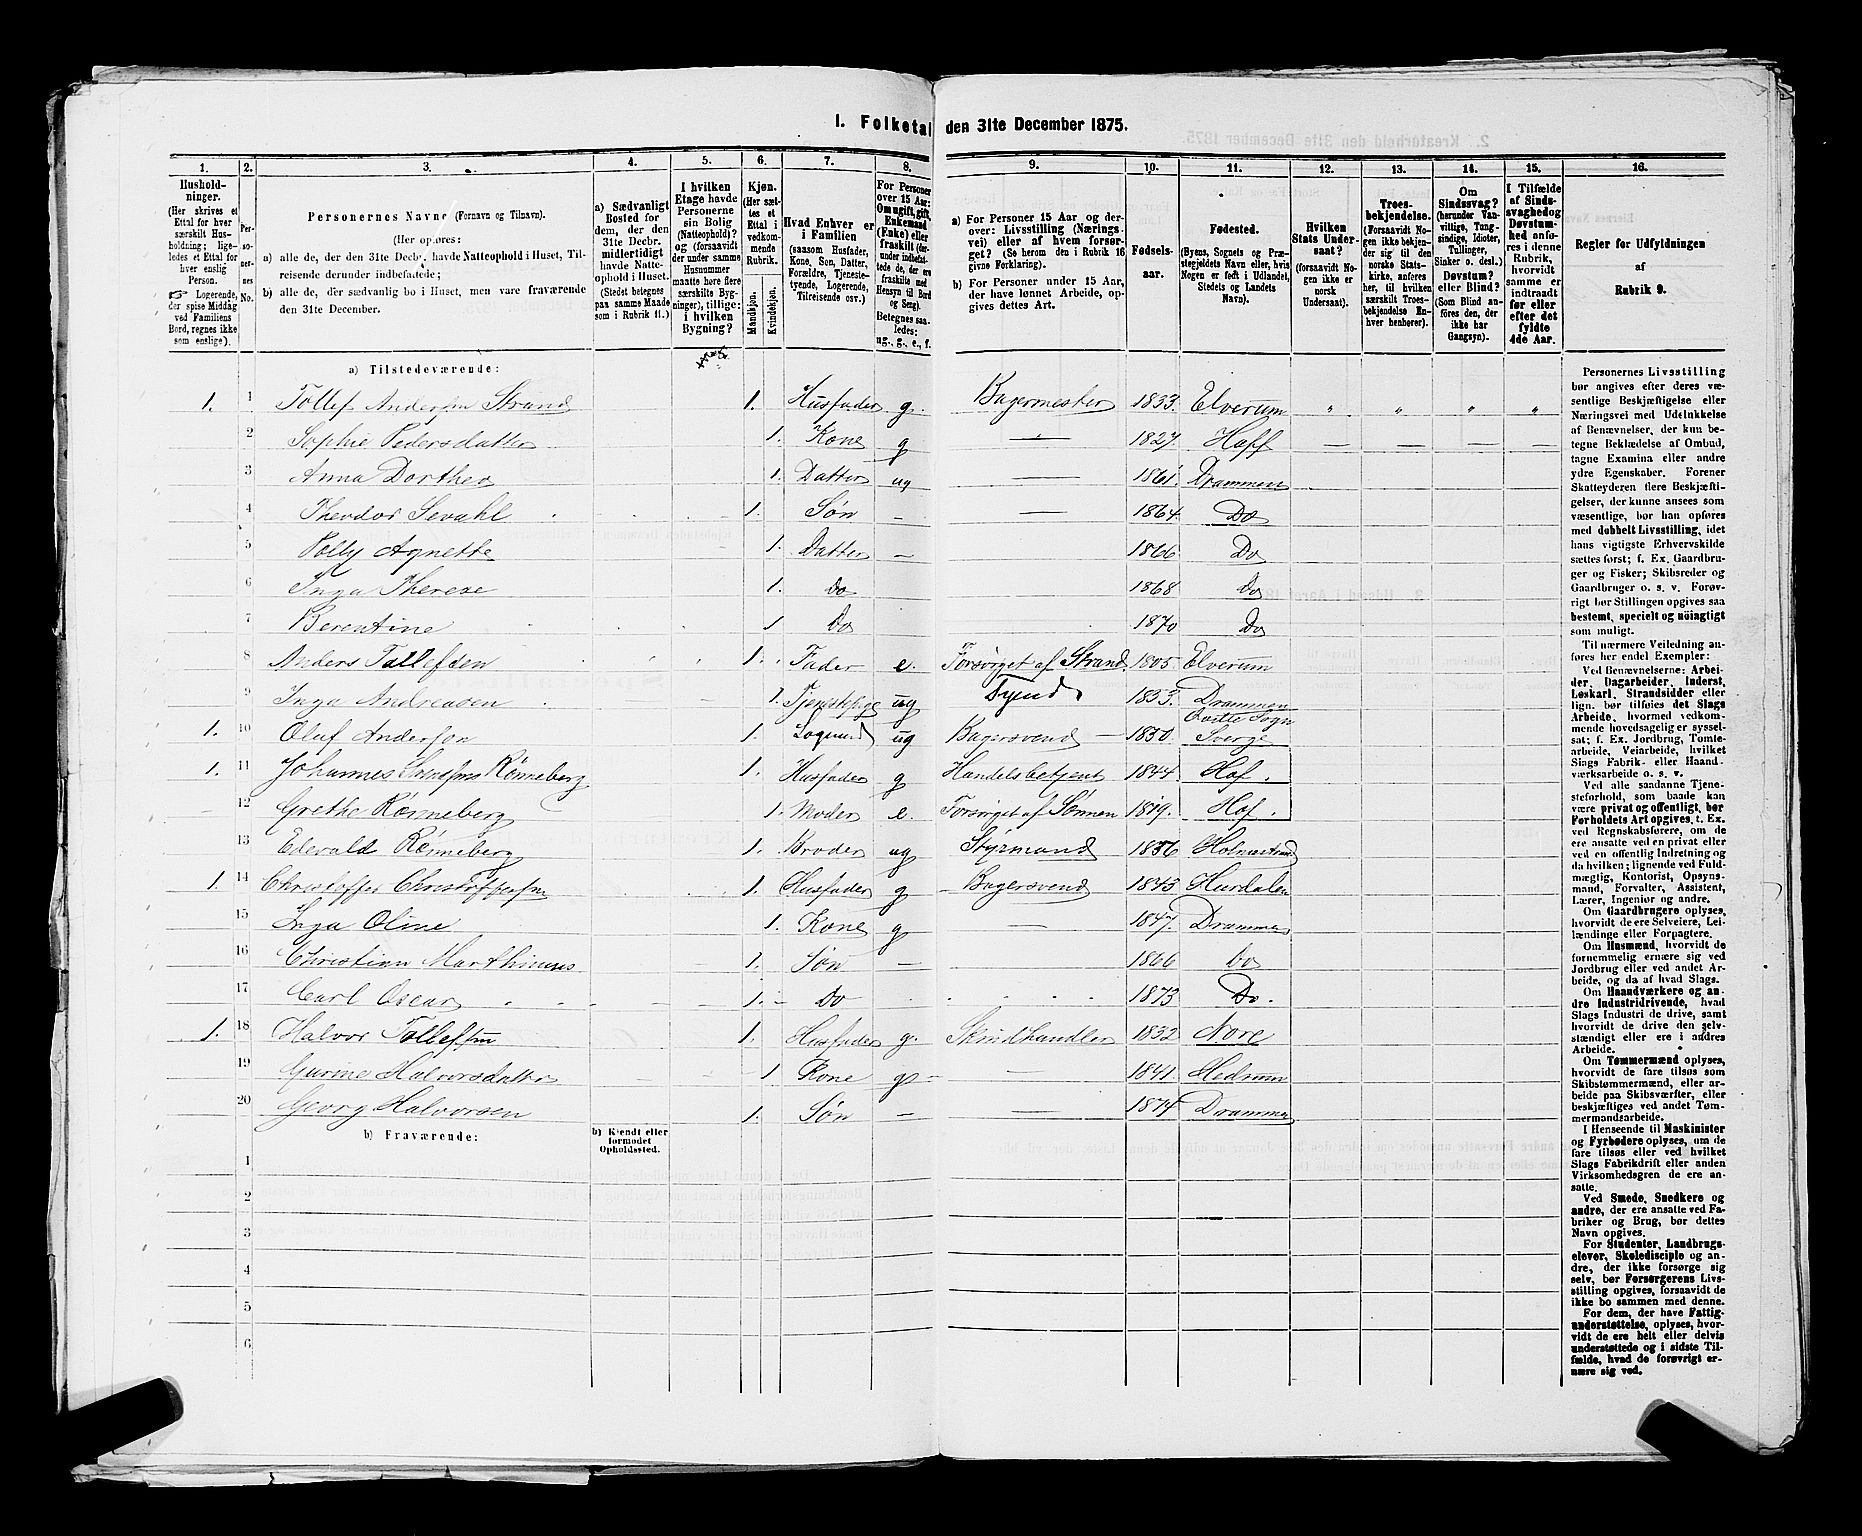 I. Folketal den 31te December 1875.
1. 2. 3. 4. 5. 6. 7. 8. 9. 10. 11. 12. 13. 14. 15. 16.
Husholdninger.
(Her skrives et Ettal for hver særskilt Husholdning; ligeledes et Ettal for hver enslig Person.
☞ Logerende, der spise Middag ved Familiens Bord, regnes ikke som enslige).
Personernes No.
Personernes Navne (Fornavn og Tilnavn).
(Her opføres:
a) alle de, der den 31te Decbr. havde Natteophold i Huset, Tilreisende derunder indbefattede;
b) alle de, der sædvanlig bo i Huset, men vare fraværende den 31te December.
a) Sædvanligt Bosted for dem, der den 31te Decbr. midlertidigt havde Natteophold i Huset.
(Stedet betegnes paa samme Maade som i Rubrik 11.)
I hvilken Etage havde Personerne sin Bolig (Natteophold)? og (forsaavidt der under samme Husnummer maatte høre flere særskilte Bygninger), tillige: i hvilken Bygning?
Kjøn.
(Her sættes et Ettal i vedkommende Rubrik.
Mandkjøn. Kvindekjøn.
Hvad Enhver er i Familien
(saasom Husfader, Kone, Søn, Datter, Forældre, Tjenestetyende, Logerende, Tilreisende osv.)
For Personer over 15 Aar: Om ugift, gift, Enkemand (Enke) eller fraskilt (derunder indbefattede de, der ere fraskilte med Hensyn til Bord og Seng).
Betegnes saaledes: ug., g., e., f.
a) For Personer 15 Aar og derover: Livsstilling (Næringsvei) eller af hvem forsørget? (Se herom den i Rubrik 16 givne Forklaring).
b) For Personer under 15 Aar, der have lønnet Arbeide, opgives dettes Art.
Fødselsaar.
Fødested.
(Byens, Sognets og Præstegjeldets Navn eller, hvis Nogen er født i Udlandet, Stedets og Landets Navn).
Hvilken Stats Undersaat?
(forsaavidt Nogen ikke er norsk Undersaat).
Troesbekjendelse.
(Forsaavidt Nogen ikke bekjender sig til den norske Statskirke, anføres her, til hvilket særskilt Troesbekjendelse Enhver henhører).
Om Sindssvag? (herunder Vanvittige, Tungsindige, Idioter, Tullinger, Sinker o. desl.)
Døvstum? eller Blind?
(Som Blind anføres den, der ikke har Gangsyn).
I Tilfælde af Sindssvaghed og Døvstumhed anføres i denne Rubrik, hvorvidt samme er indtraadt før eller efter det fyldte 4de Aar.
Regler for Udfyldningen af Rubrik 9.
a) Tilstedeværende:
1. 1 Tollef Andersen Strand 1. Husfader g. Bagermester 1833. Elverum " " " "
2 Sophie Pedersdatter 1. Kone g — 1827. Hoff — — — —
3 Anna Dorthea 1. Datter ug — 1861. Drammen
4 Theodor Sevahl 1. Søn — — 1864. Do
5 Polly Agnette 1. Datter — 1866 Do
6 Inga Therese 1. Do 1868 Do
7 Berentine 1 Do 1870 Do
8 Anders Tollefsen 1. Fader e. Forsörget af Strand. 1805. Elverum
9 Inga Andreasen 1. Tjenstepige ug Tyende 1853. Drammen
1. 10 Oluf Anderson 1. Logerende ug Bagersvend — 1850. Sogn Sverge
1. 11 Johannes Rønneberg 1. Husfader g Handelsbetjent 1844. Hof.
12 Grethe Rønneberg 1. Moder e. Forsörget af Sönnen 1819. Hof.
13 Edevald Rønneberg 1. Broder ug Styrmand 1856 Holmestrand
1. 14 Christoffer Christoffersen 1. Husfader g Bagersvend 1843 Hurdalen
15 Inga Oline 1. Kone g — 1847. Drammen
16 Christian Marthinus 1. Søn — 1866 Do
17 Carl Oscar 1. Do 1873 Do.
1. 18 Halvor Tollefsen 1. Husfader g. Skindhandler 1832 Nore
19 Gurine Halvorsdatter 1. Kone g — 1841. Hedrum
20 Georg Halvorsen 1. Søn — — 1874 Drammen
b) Fraværende:
b) Kjendt eller formodet Opholdssted.
1
2
3
4
5
6
Personernes Livsstilling
bør angives efter deres væsentlige Beskjæftigelse eller
Næringsvei med Udelukkelse
af Benævnelser, der kun betegne Beklædelse af Ombud,
tagne Examina eller andre
ydre Egenskaber. Forener
Skatteyderen flere Beskjæftigelser, der kunne ansees som
væsentlige, bør han opføres
med dobbelt Livsstilling, idet
hans vigtigste Erhvervskilde
sættes først; f. Ex. Gaardbruger og Fisker; Skibsreder og
Gaardbruger o. s. v. Forøvrigt bør Stillingen opgives saa
bestemt, specielt og nöiagtigt
som muligt.
Til nærmere Veiledning anføres her endel Exempler:
Ved Benævnelserne: Arbeider, Dagarbeider, Inderst,
Løskarl, Strandsidder eller
lign. bør tilføies det Slags
Arbeide, hvormed vedkommende hovedsagelig er sysselsat; f. Ex. Jordbrug, Tomtearbeide, Veiarbeide, hvilket
Slags Fabrik- eller Haandværksarbeide o. s. v.
Ved alle saadanne Tjenesteforhold, som baade kan
være privat og offentligt, bør
Forholdets Art opgives, t. Ex.
ved Regnskabsførere, om de
ere ansatte ved en privat eller
ved en offentlig Indretning og
da hvilken; lignende ved Fuldmægtig, Kontorist, Opsynsmand, Forvalter, Assistent,
Lærer, Ingeniør og andre.
Om Gaardbrugere oplyses,
hvorvidt de ere Selveiere, Leilændinge eller Forpagtere.
Om Husmænd, hvorvidt de
fornemmelig ernære sig ved
Jordbrug eller ved andet Arbeide, og da af hvad Slags.
Om Haandværkere og andre Industridrivende, hvad
Slags Industri de drive, samt
hvorvidt de drive den selvstændigt eller ere i andres
Arbeide.
Om Tømmermænd oplyses,
hvorvidt de fare tilsøs som
Skibstømmermænd, eller arbeide paa Skibsværfter, eller
beskjæftiges ved andet Tømmermandsarbeide.
I Henseende til Maskinister
og Fyrbødere oplyses, om de
fare tilsøs eller ved hvilket
Slags Fabrikdrift eller anden
Virksomhedsgren de ere ansatte.
Ved Smede, Snedkere og
andre, der ere ansatte ved Fabriker og Brug, bør dettes
Navn opgives.
For Studenter, Landbrugselever, Skoledisciple og andre, der ikke forsørge sig
selv, bør Forsørgerens Livsstilling opgives, forsaavidt de
ikke bo sammen med denne.
For dem, der have Fattigunderstøttelse, oplyses, hvorvidt de ere helt eller delvis
understøttede og i sidste Tilfælde, hvad de forøvrigt ernære sig ved.